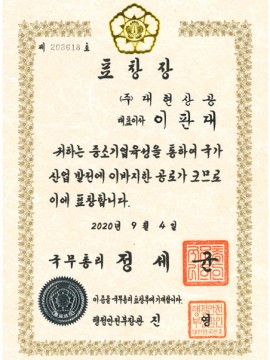 제 203618 호
표 창 장
(주) 재현산공
대표이사 이 환 재
귀하는 중소기업육성을 통하여 국가
산업 발전에 이바지한 공로가 크므로
이에 표창합니다.
2020년 9월 4일
국무총리 정 세 균
이 증을 국무총리 표창부에 기재합니다.
행정안전부장관 진 영